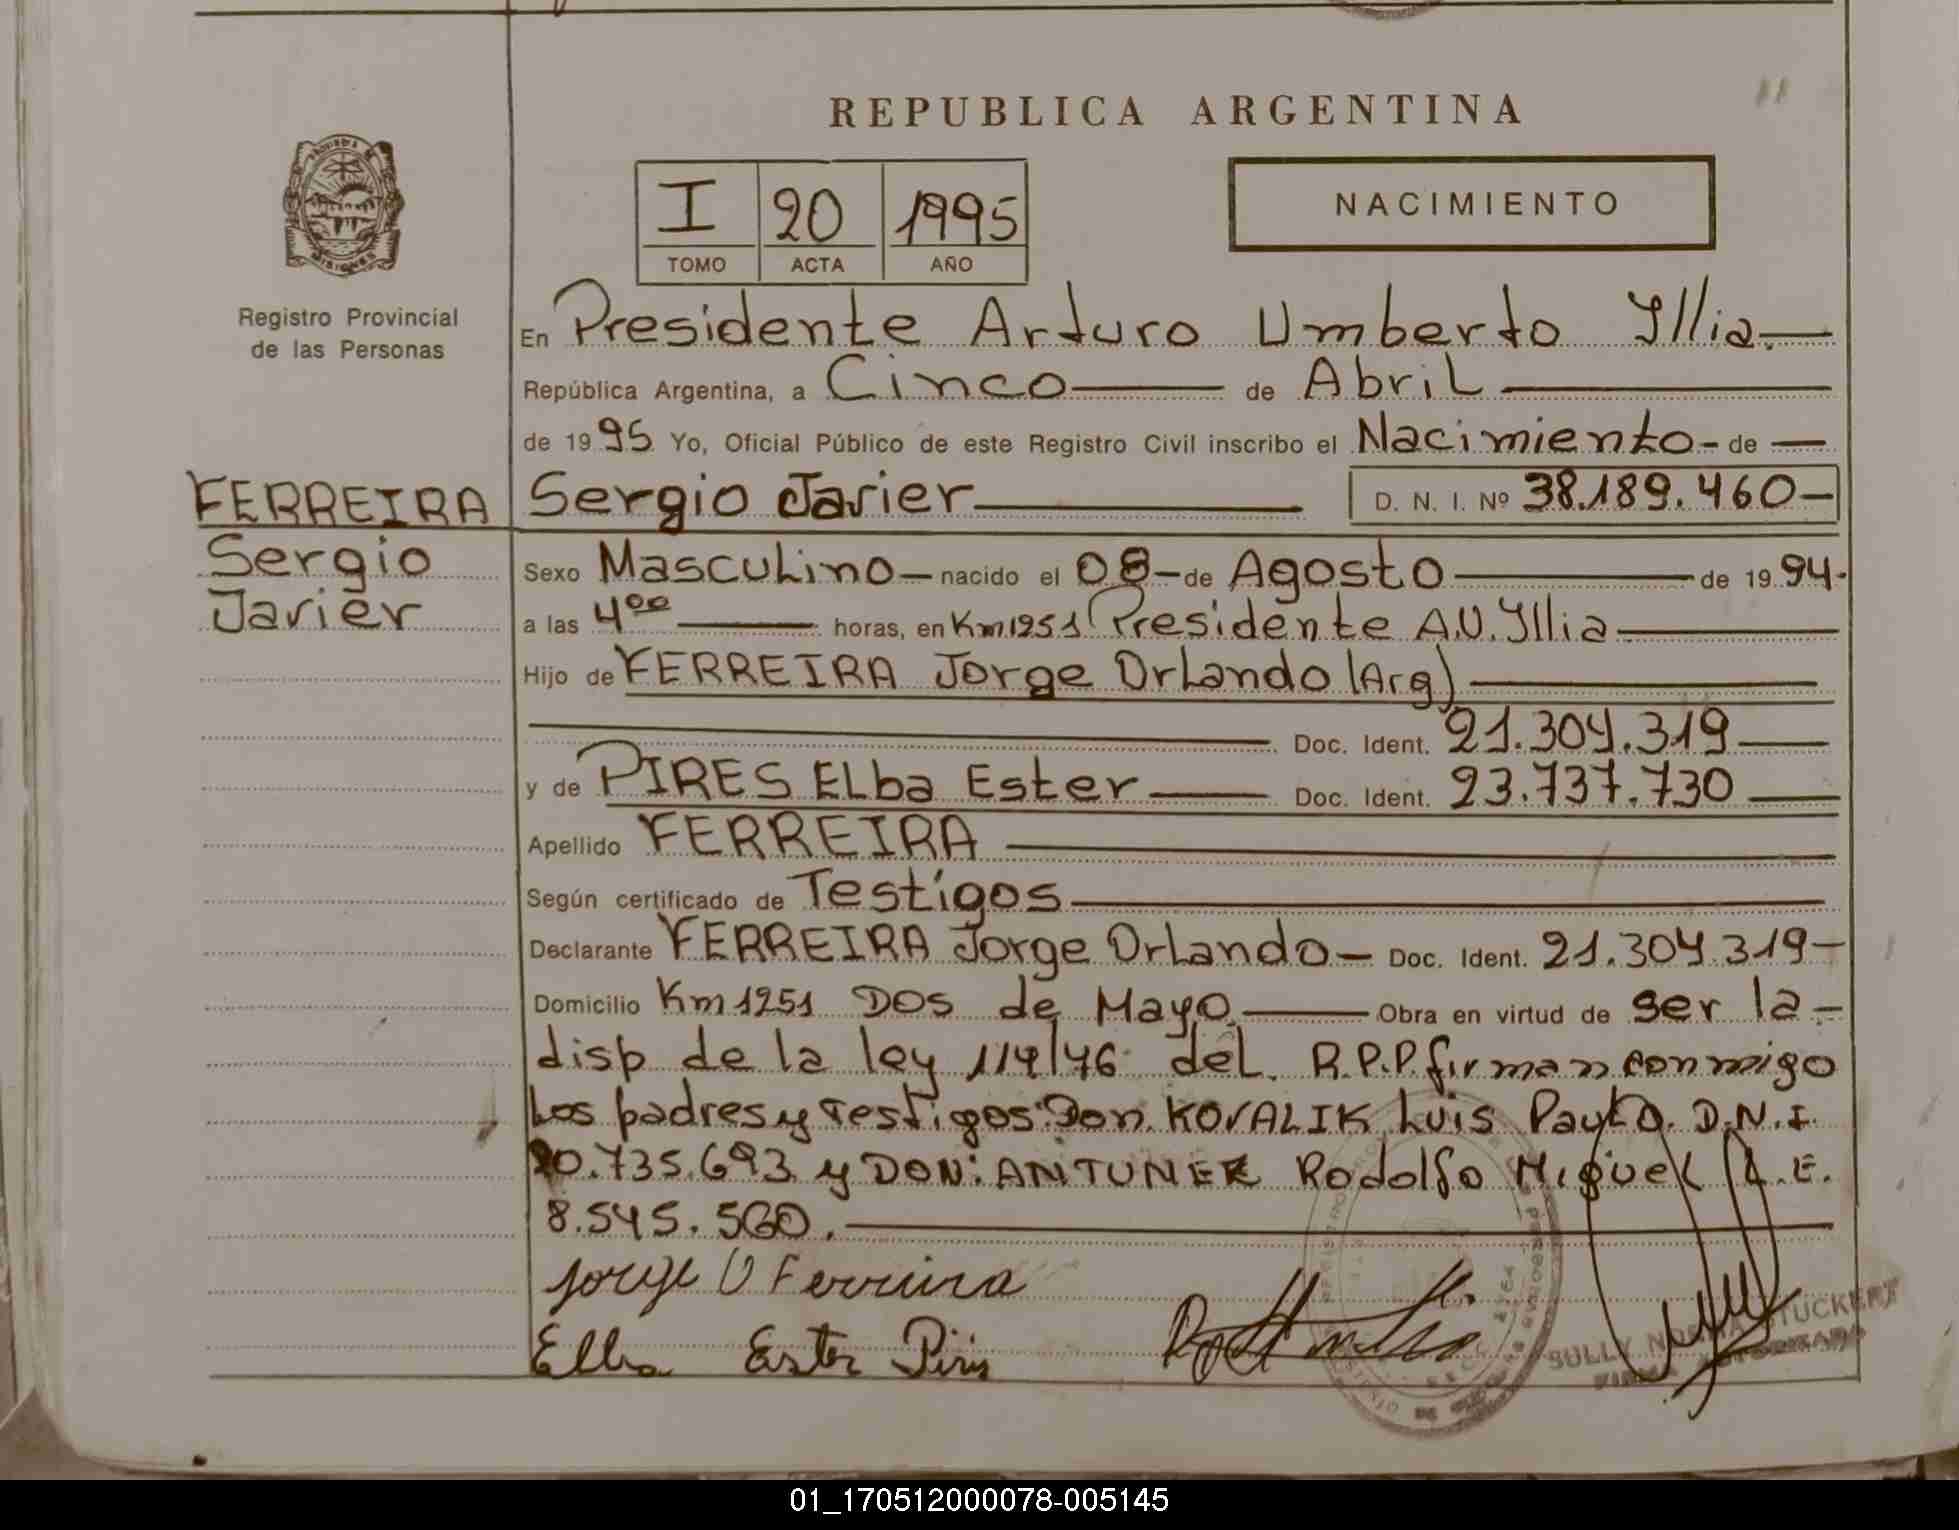 REPUBLICA ARGENTINA
I 20 1995
TOMO ACTA AÑO
NACIMIENTO
MISIONES
Registro Provincial
de las Personas
En Presidente Arturo Umberto Illia.
República Argentina, a Cinco de Abril
de 1995 Yo, Oficial Público de este Registro Civil inscribo el Nacimiento - de
FERREIRA Sergio Javier D. N. I. Nº 38.189.460
Sergio
Javier
Sexo Masculino nacido el 08 - de Agosto de 1994.
a las 4⁰⁰ horas, en Km 1251 Presidente A.U. Illia
Hijo de FERREIRA Jorge Orlando (Arg)
Doc. Ident. 21.304.319
y de PIRES Elba Ester Doc. Ident. 23.737.730
Apellido FERREIRA
Según certificado de Testigos
Declarante FERREIRA Jorge Orlando - Doc. Ident. 21.304.319
Domicilio Km 1251 Dos de Mayo. Obra en virtud de ser la
disp de la ley 114/76 del R.P.P. firman conmigo
los padres y Testigos: Don KOVALIK Luis Paulo. D.N.I.
20.735.693 y DON: ANTUNEK Rodolfo Miguel L.E.
8.545.560.
Jorge O Ferreira
Elba Ester Piris
SULLY NORMA STUCKERT
01_170512000078-005145